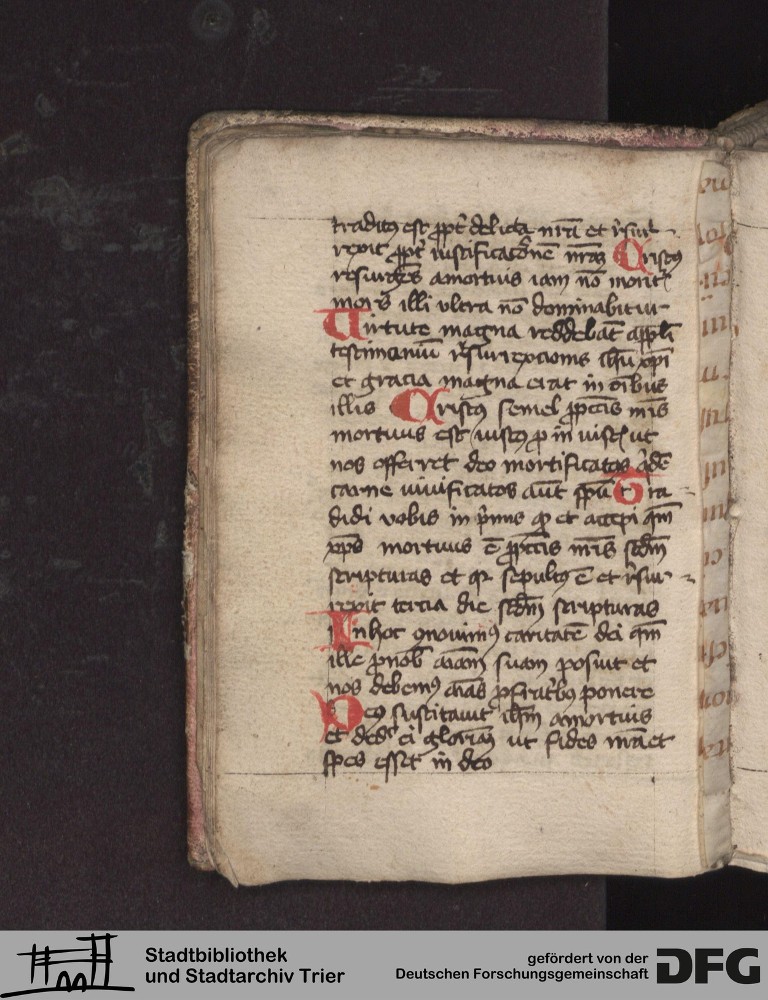 traditꝰ est ꝓpt̉ delicta nr̃a et r̉sur-
rexit ꝓpt̉ iustificac̉onē nr̃aʒ Cristꝰ
resurgēs amortuis iam nō morit̉
mors illi vltra nō dominabitur
Virtute magna reddebāt appl̃i
testimoniū r̉surrexcionis ih̃u xp̃i
et gracia magna erat in oĩbus
illis Cristꝰ semel ꝓ pctĩs nr̃is
mortuus est iustꝰ ꝓ iniust̉ ut
nos offerret deo mortificatos q̉dē
carne viuificatos aũt sp̃u Tra-
didi vobis in p̉mis qđ et accepi qm̃
xp̃s mortuus ē ꝓ pctĩs nr̃is scdm̃
scripturas et qꝛ sepultꝰ ē et r̉sur-
rexit tercia die scdm̃ scripturas
Inhoc ꝯnouimꝰ caritatē dei qm̃
ille ꝓnob̃ aĩam suam posuit et
nos debemꝰ aĩas ꝓ fratribꝰ ponere
Deꝰ suscitauit ih̃m amortuis
et ded̉ ei gloriam ut fides nr̃a et
spes esset in deo
Stadtbibliothek
und Stadtarchiv Trier
gefördert von der
Deutschen Forschungsgemeinschaft
DFG